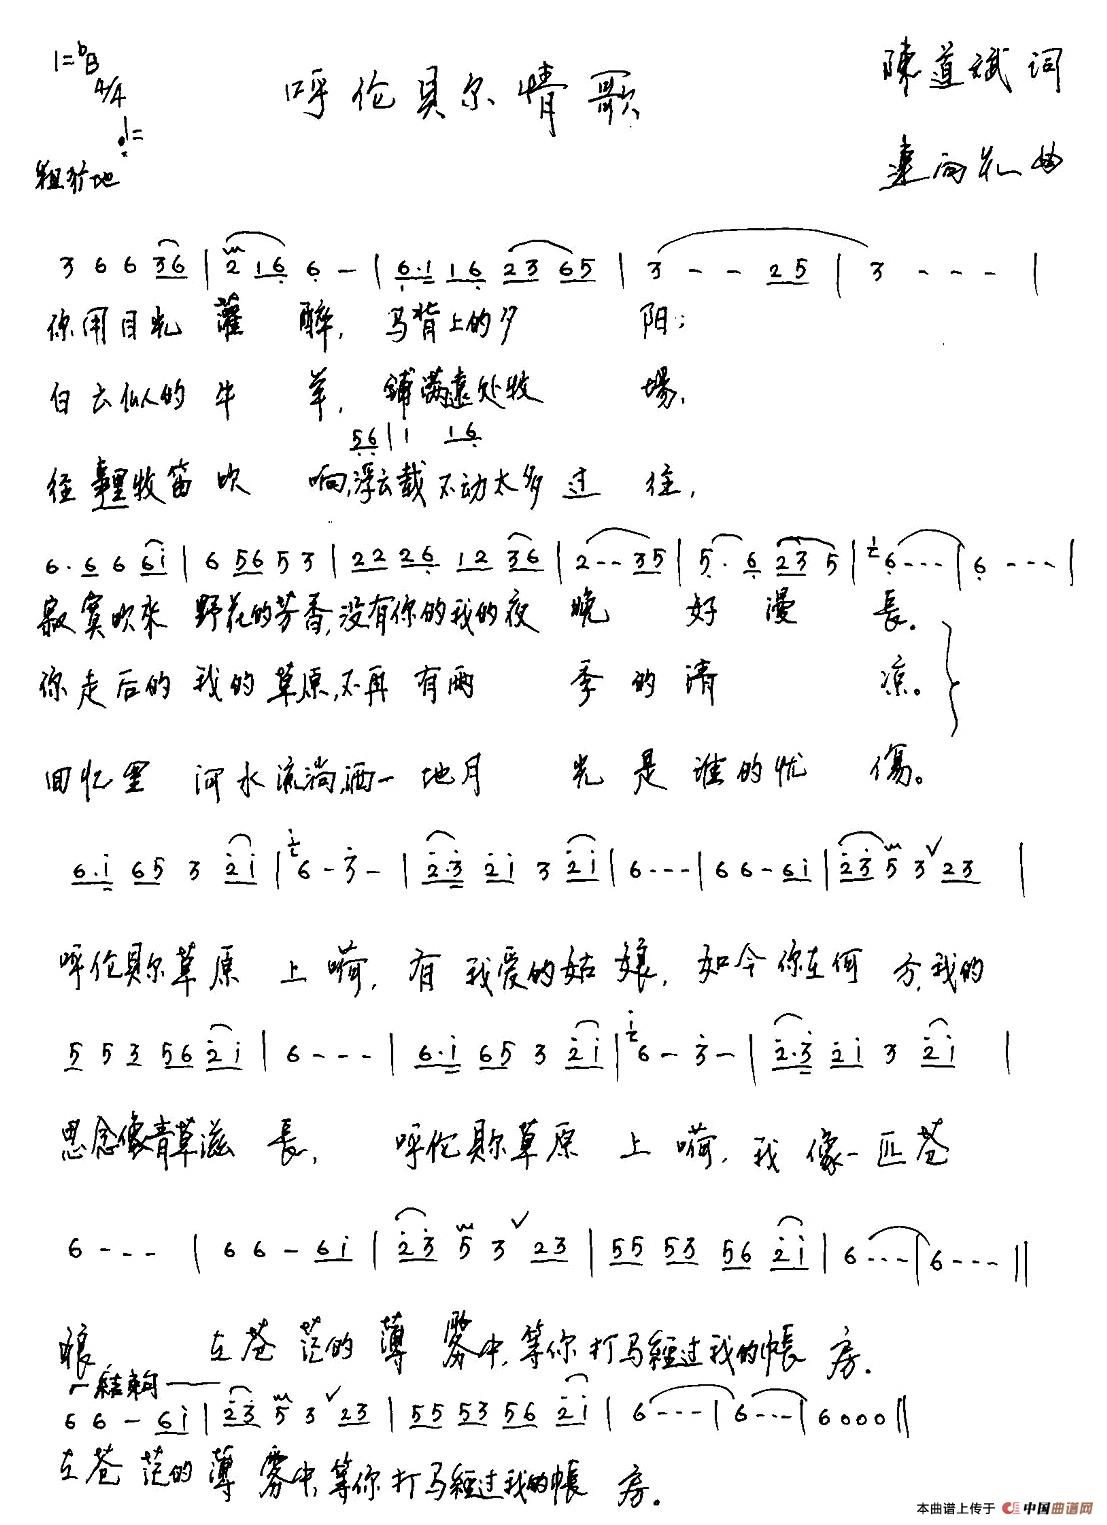 1=bB
4/4
呼伦贝尔情歌
陳道斌 词
粗犷地
曲
3 6 6 36 | 2 16 6 - | 6·1 16 23 65 | 3 - - 25 | 3 - - - |
你用目光 灌 醉, 马背上的夕 阳;
白云似的 牛 羊, 铺满远处牧 場,
56 | 1 16
牧笛 吹 响,浮云载不动太多过 往,
6·6 6 6i | 6 56 5 3 | 22 26 12 36 | 2 - - 35 | 5·6 23 5 | 6 - - - | 6 - - - |
寂寞吹来 野花的芳香,没有你的我的夜 晚 好 漫 長。
你走后的 我的草原,不再 有两 季 的 清 凉。
回忆里 河水流淌,洒一 地月 光 是 谁的忧 傷。
6·i 65 3 2i | 6 - 3 - | 2·3 2i 3 2i | 6 - - - | 6 6 - 6i | 23 5 3 23 |
呼伦贝尔草原 上 嗬, 有 我爱的姑娘, 如今你在何 方,我的
5 5 3 56 2i | 6 - - - | 6·i 65 3 2i | 6 - 3 - | 2·3 2i 3 2i |
思念像青草滋 長, 呼伦贝尔草原 上 嗬, 我 像一匹苍
6 - - - | 6 6 - 6i | 23 5 3 23 | 55 53 56 2i | 6 - - - | 6 - - - ||
狼 在苍 茫的 薄 雾中,等你打马經过我的帳 房.
結束句
6 6 - 6i | 23 5 3 23 | 55 53 56 2i | 6 - - - | 6 - - - | 6 0 0 0 ||
在苍 茫的 薄 雾中,等你打马經过我的帳 房.
本曲谱上传于 中国曲谱网